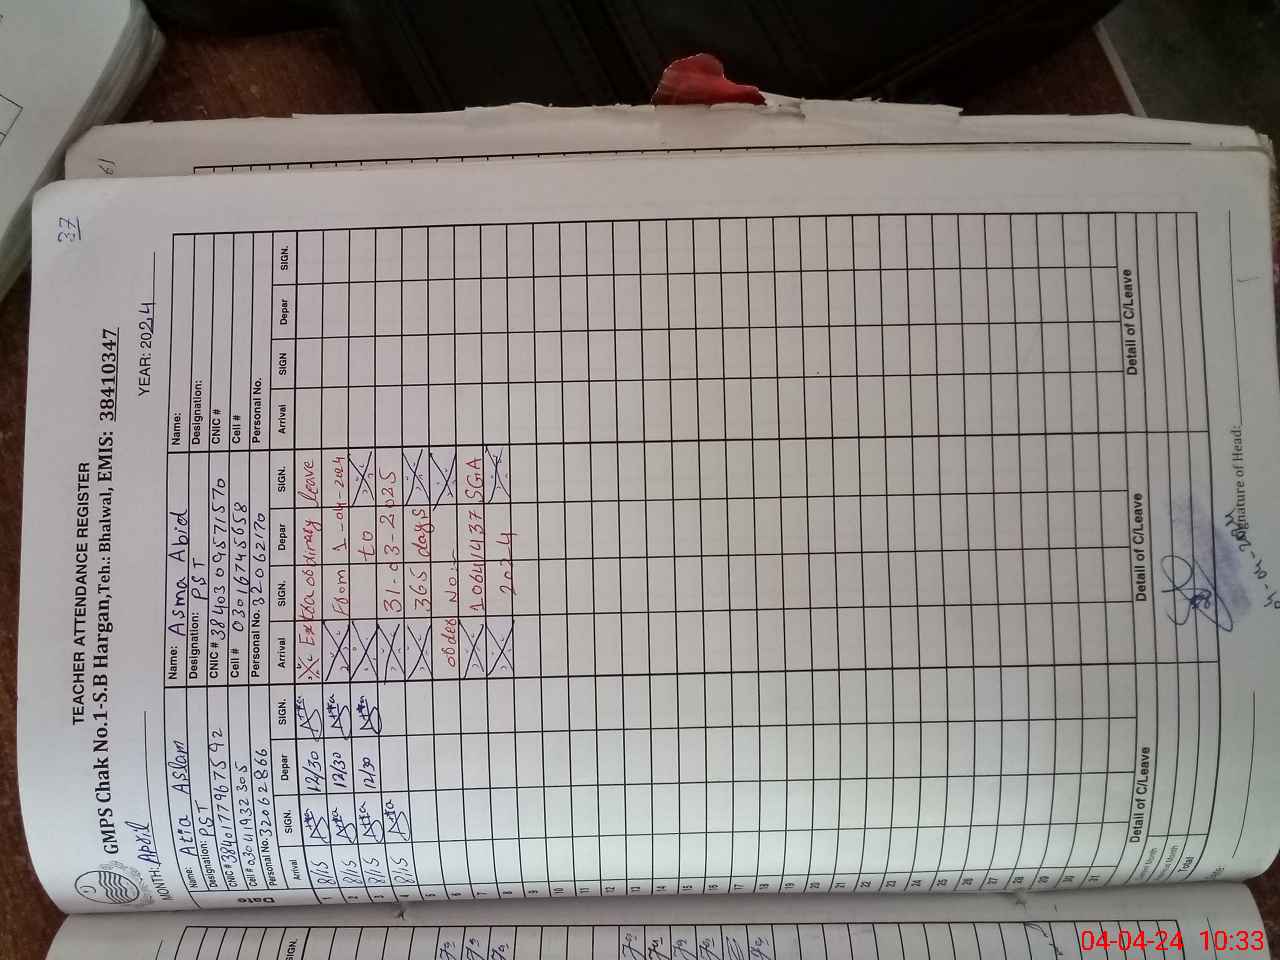 37
TEACHER ATTENDANCE REGISTER
GMPS Chak No.1-S.B Hargan,Teh.: Bhalwal, EMIS: 38410347
MONTH: April
YEAR: 2024
Name: Atia Aslam
Designation: PST
CNIC # 3840177967592
Cell # 03041932305
Personal No. 32062866
Name: Asma Abid
Designation: PST
CNIC # 3840309571570
Cell # 03016745658
Personal No. 32062170
Name:
Designation:
CNIC #
Cell #
Personal No.
Date
Arrival SIGN. Depar SIGN. Arrival SIGN. Depar SIGN. Arrival SIGN Depar SIGN.
1 8/15 Atia 12/30 Atia Extra obdinary leave
2 8/15 Atia 12/30 Atia From 1-04-2024
3 8/15 Atia 12/30 Atia to
4 8/15 Atia 31-03-2025
5 365 days
6 obder No:-
7 1064437 SGA
8 2024
9
10
11
12
13
14
15
16
17
18
19
20
21
22
23
24
25
26
27
28
29
30
31
Detail of C/Leave Detail of C/Leave Detail of C/Leave
Month
Month
Total
Date:
Signature of Head:
61
SIGN.
04-04-24 10:33